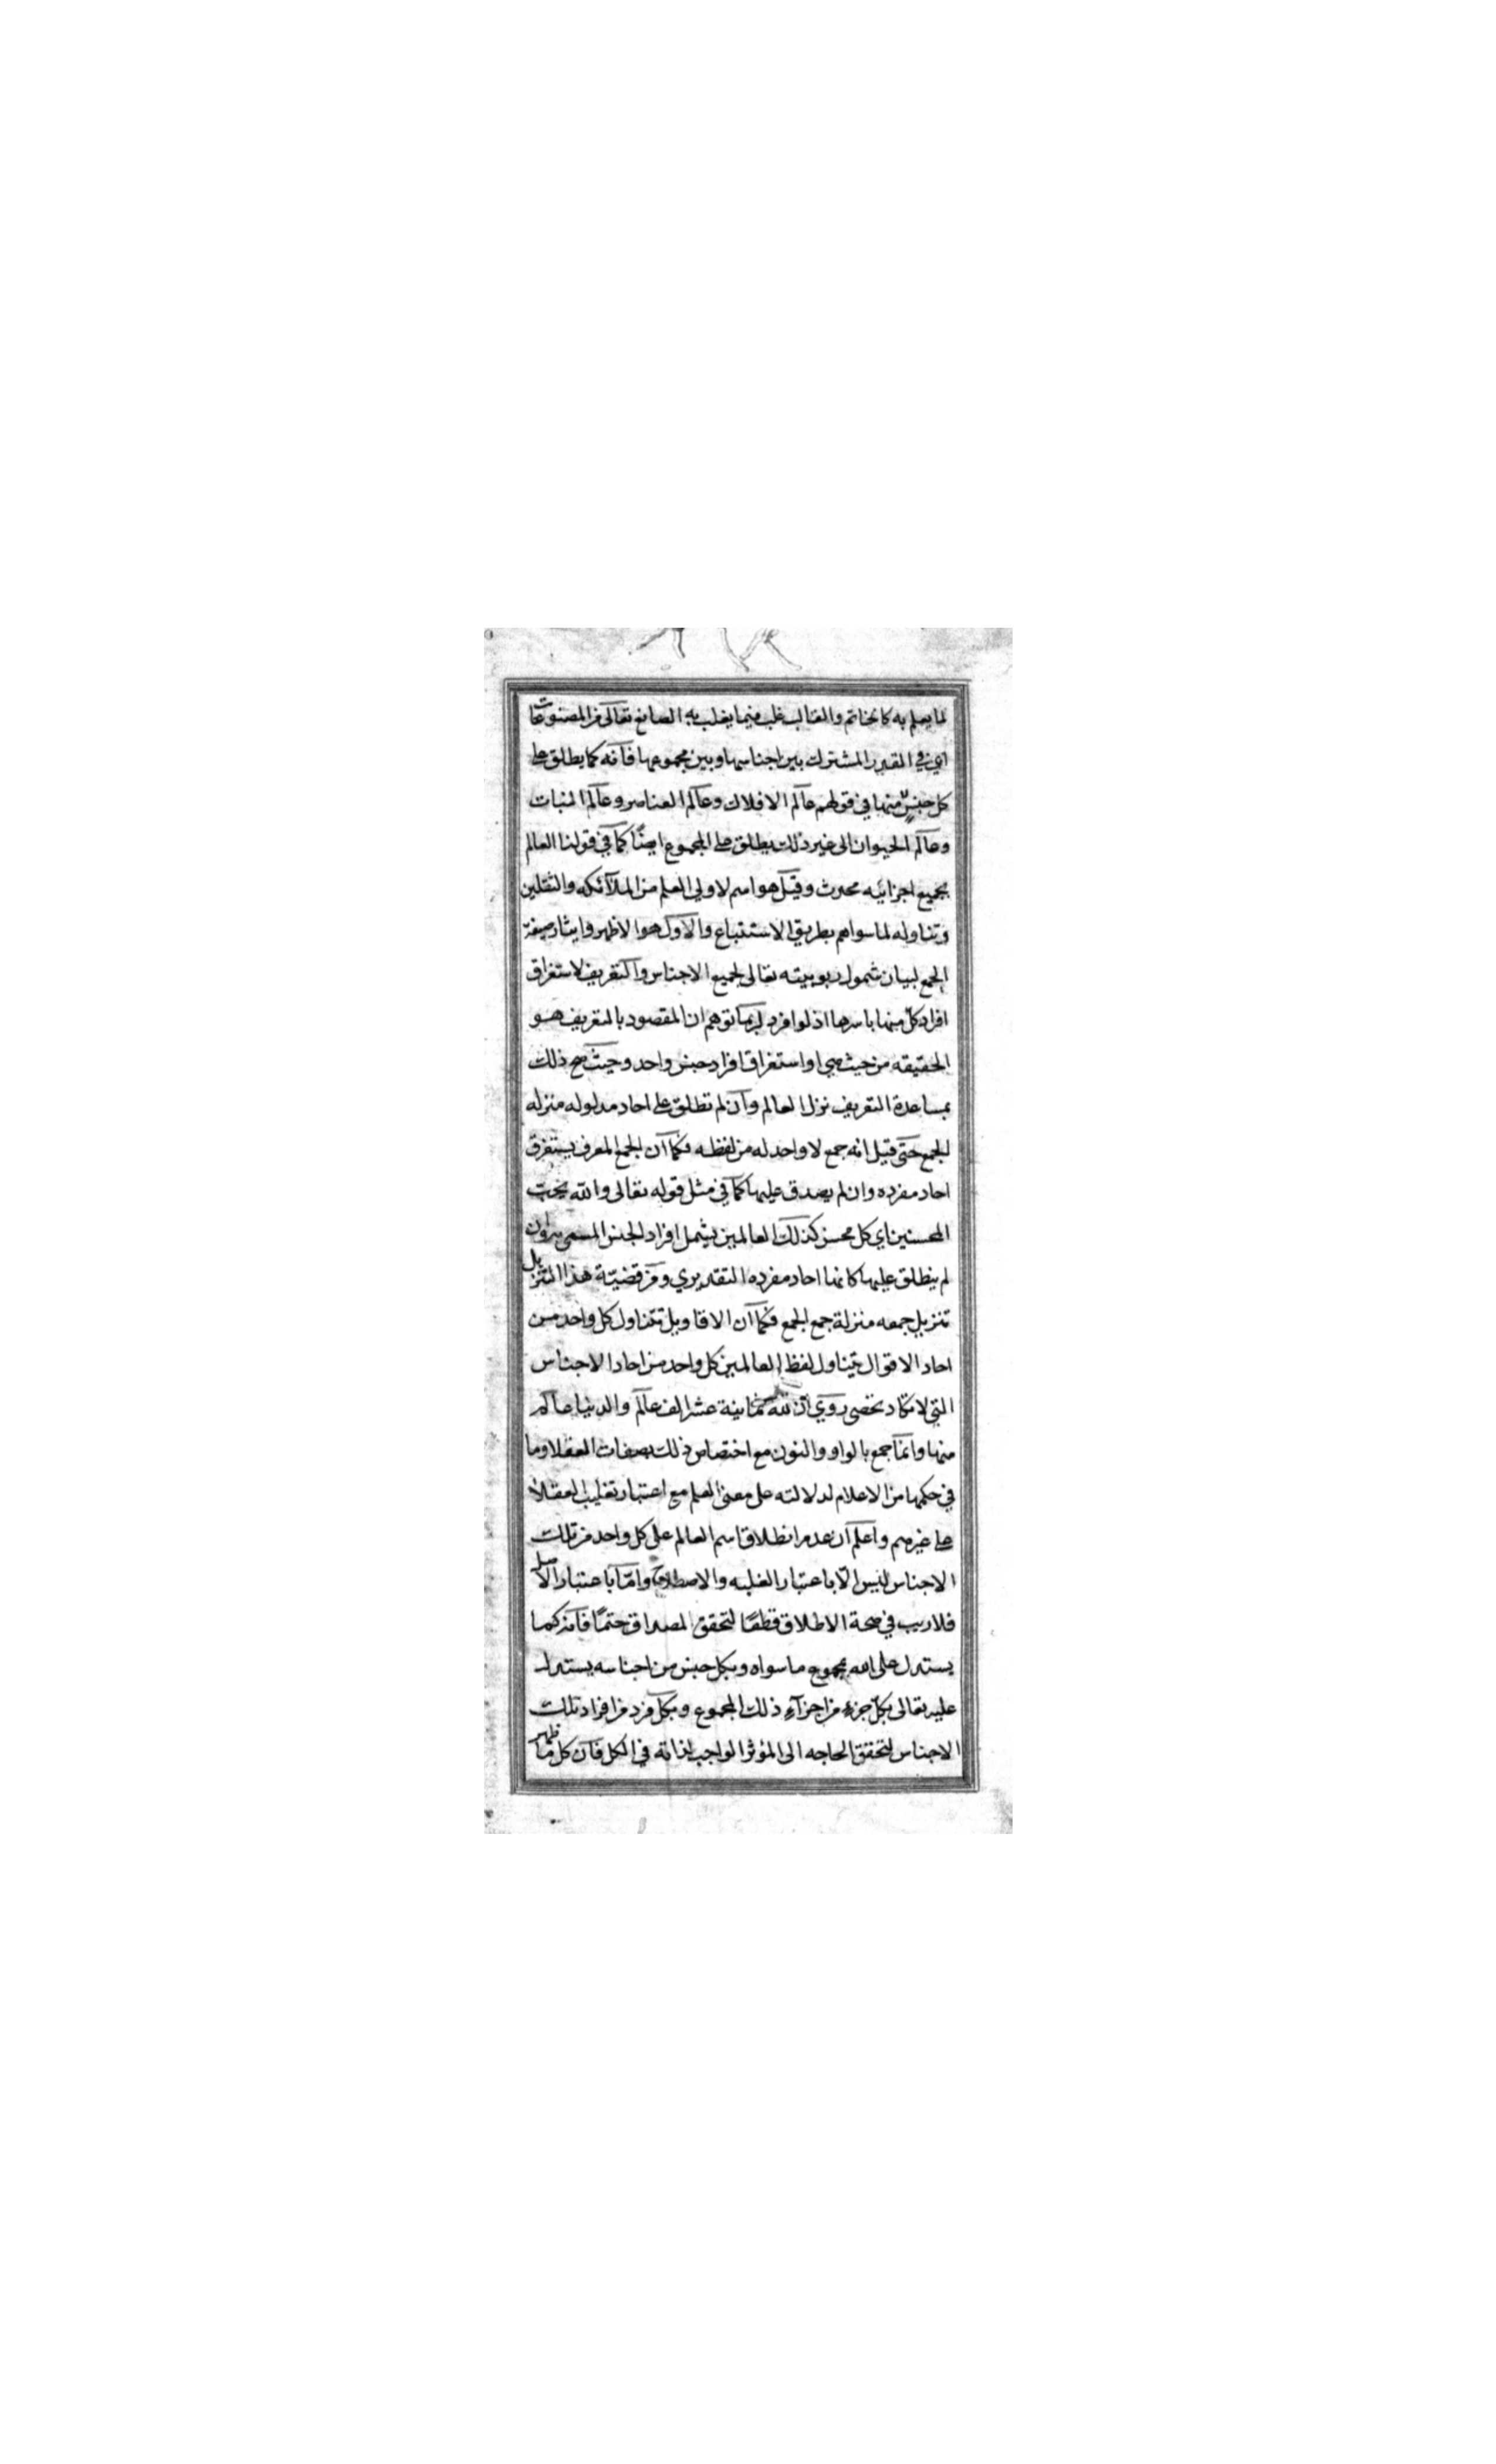 لما يعلم به كالخاتم والقالب غلب فيما يعلم به الصانع تعالى من المصنوعات
اي في القدر المشترك بين اجناسها وبين مجموعها فانه كما يطلق على
كل جنس منها في قولهم عالم الافلاك وعالم العناصر وعالم النبات
وعالم الحيوان الى غير ذلك يطلق على المجموع ايضًا كما في قولنا العالم
بجميع اجزائيه محدث وقيل هو اسم لاولي العلم من الملآئكه والثقلين
وتناوله لما سواهم بطريق الاستتباع والاول هو الاظهر وايثار صيغة
الجمع لبيان شمول ربوبيته تعالى لجميع الاجناس والتعريف لاستغراق
افراد كلّ منها باسرها اذ لو افرد لربما توهم ان المقصود بالتعريف هو
الحقيقه من حيث هي او استغراق افراد جنس واحد وحيث صح ذلك
بمساعدة التعريف نزل العالم وان لم تطلق على احاد مدلوله منزله
الجمع حتى قيل انه جمع لا واحد له من لفظه فكما ان الجمع المعرف يستغرق
احاد مفرده وان لم يصدق عليها كما في مثل قوله تعالى والله يحب
المحسنين اي كل محسن كذلك العالمين يشمل افراد الجنس المسمى به وان
لم ينطلق عليها كانها احاد مفرده التقديري ومن قضيّة هذا التنزيل
تنزيل جمعه منزلة جمع الجمع فكما ان الاقاويل تتناول كل واحد من
احاد الاقوال يتناول لفظ العالمين كل واحد من احاد الاجناس
التي لا تكاد تحصى روي ان لله ثمانية عشر الف عالم والدنيا عالم
منها وانما جمع بالواو والنون مع اختصاص ذلك بصفات العقلا وما
في حكمها من الاعلام لدلالته على معنى العلم مع اعتبار تغليب العقلا
على غيرهم واعلم ان عدم انطلاق اسم العالم على كل واحد من تلك
الاجناس ليس الّا باعتبار الغلبه والاصطلاح وامّا باعتبار الاصل
فلا ريب في صحة الاطلاق قطعًا لتحقق المصداق حتمًا فانه كما
يستدل على الله بمجموع ما سواه وبكل جنس من اجناسه يستدل
عليه تعالى بكلّ جزء من اجزآء ذلك المجموع وبكل فرد من افراد تلك
الاجناس لتحقق الحاجه الى المؤثر الواجب لذاته في الكل فان كل ما ظهر